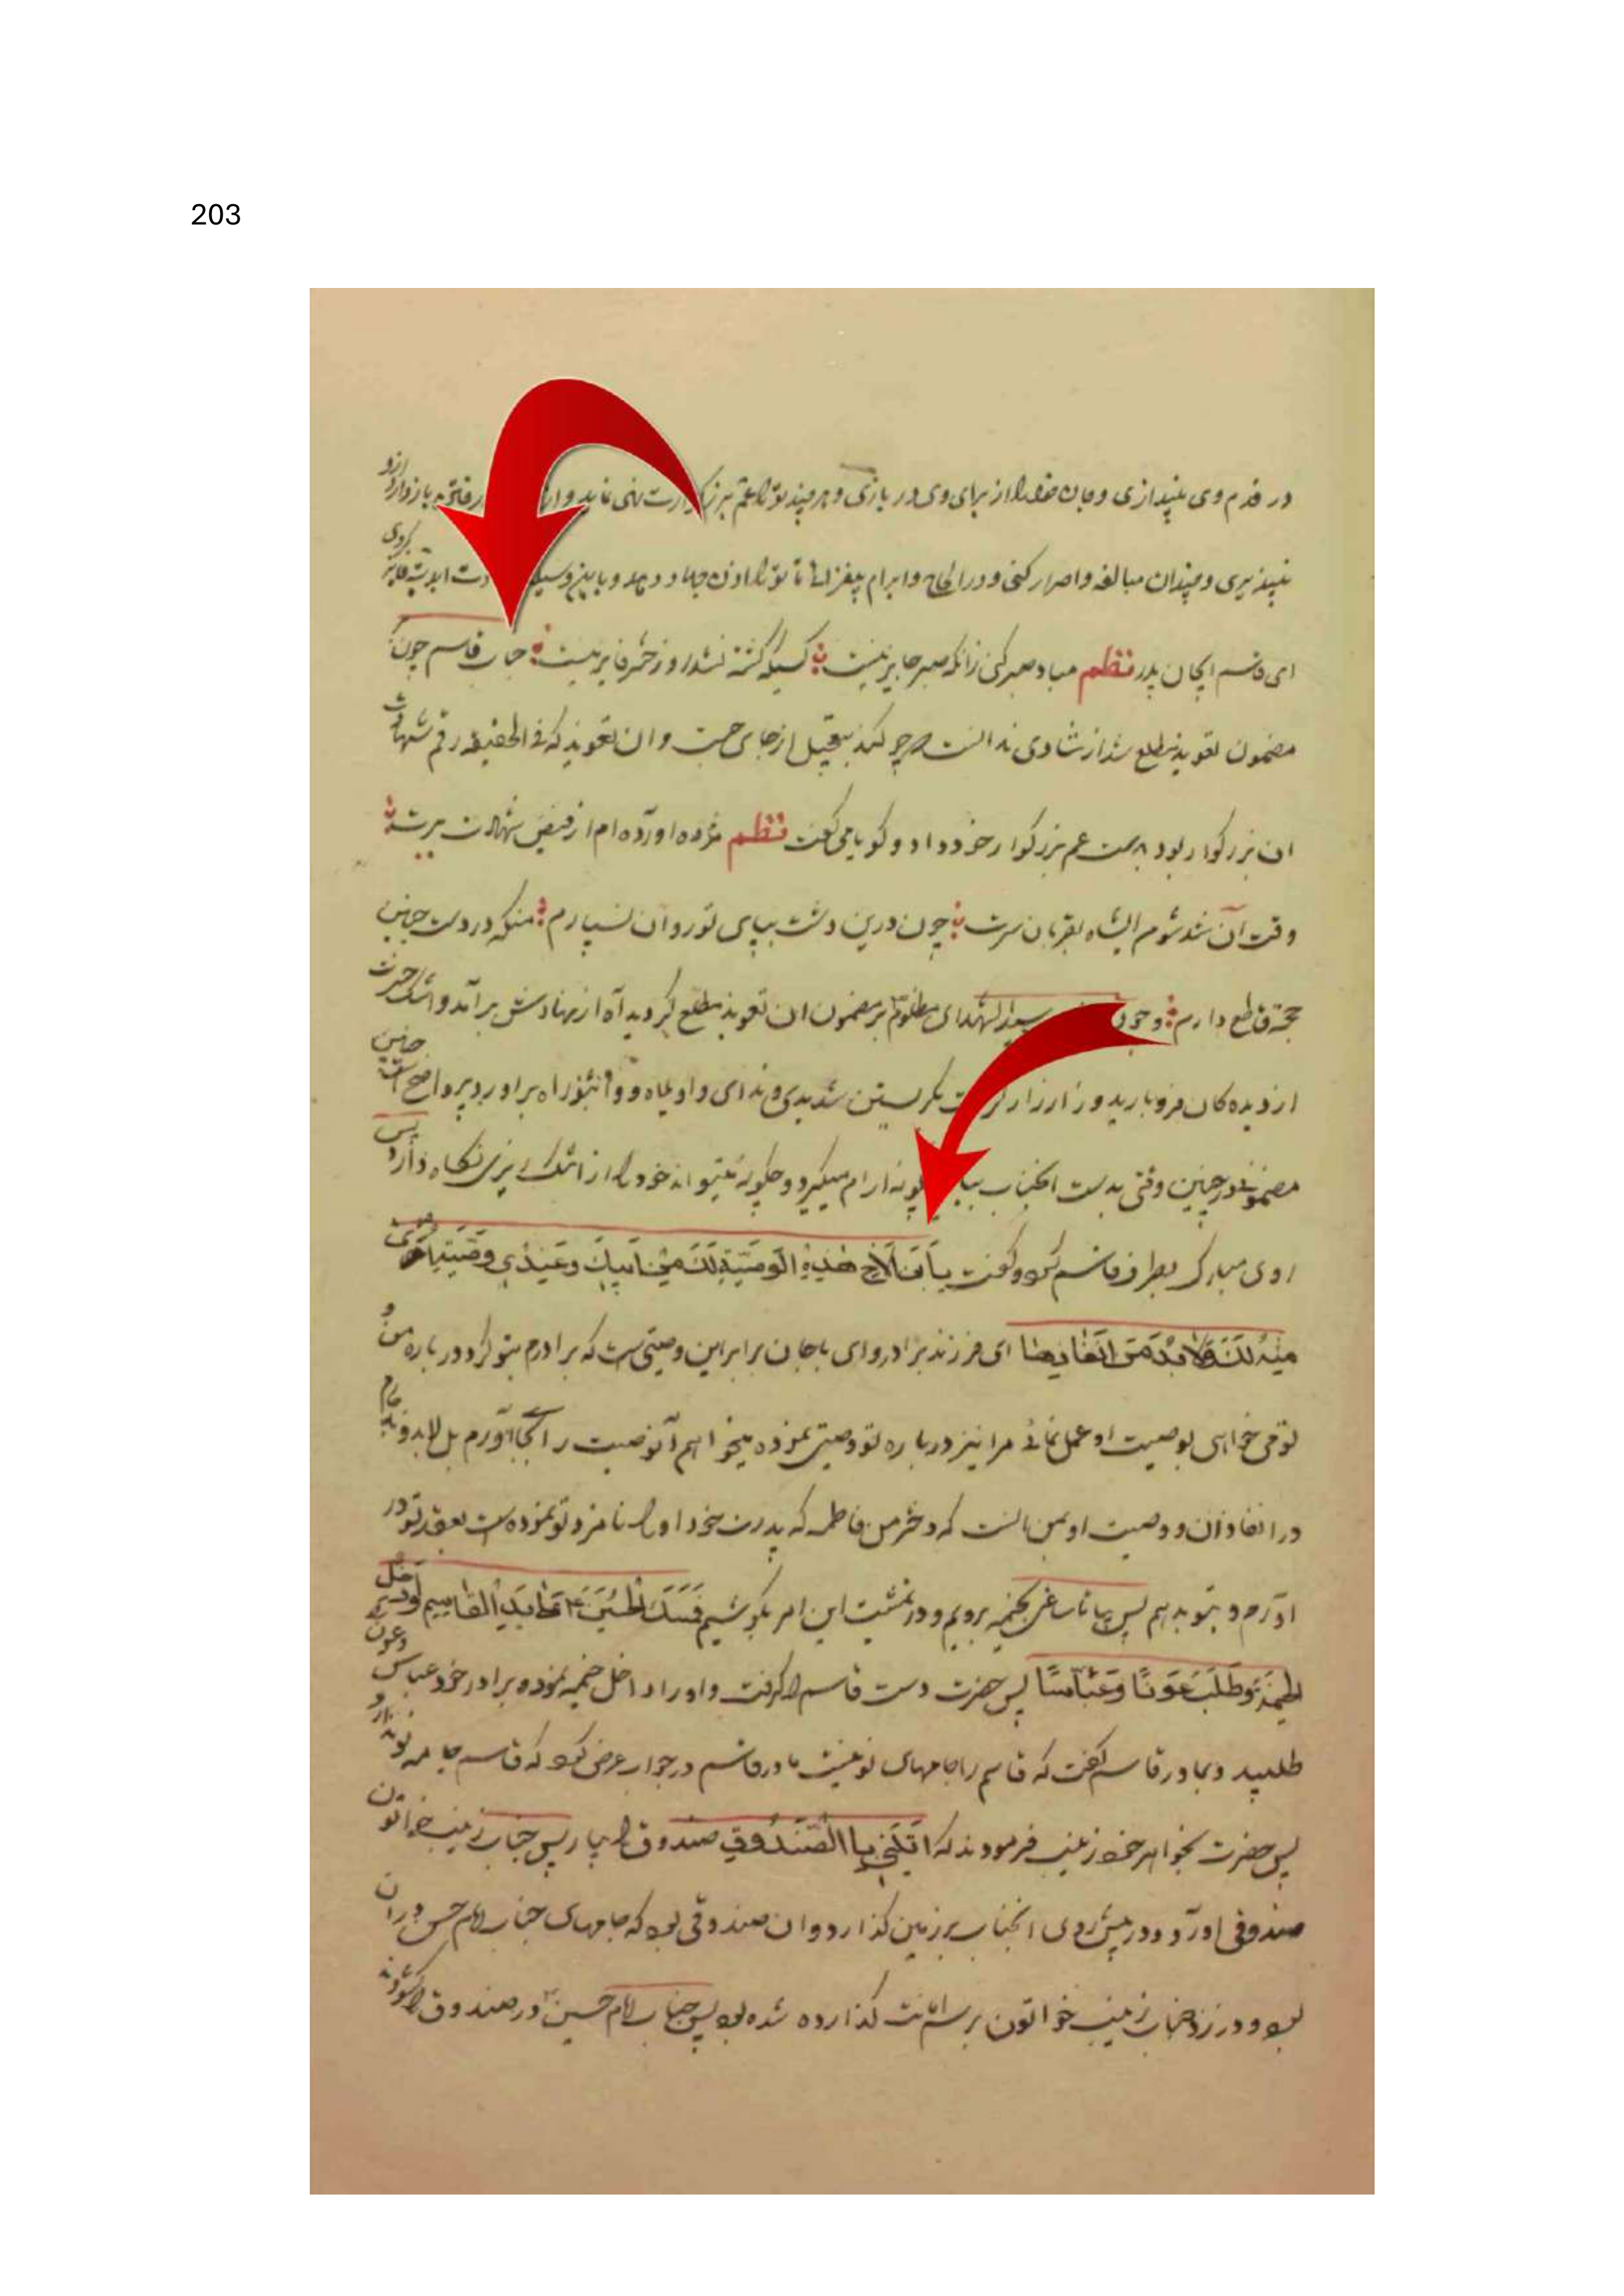 203
در قدم وی بیندازی و جان خود را از برای وی در بازی و هر چند تو را عم بزرگوارت نهی نماید و از رفتن باز دارد ازو
نپذیری و چندان مبالغه و اصرار کنی و در الحاح و ابرام بیفزائی تا تو را اذن جهاد دهد و باین وسیله ابدیه فایز کردی
ای قاسم ایجان پدر نظم مباد صبر کنی زانکه صبر جایز نیست کسیکه کشته نشد روز حشر فایز نیست جناب قاسم چون
مضمون تعویذ مطلع شد از شادی ندانست که چه کند بتعجیل از جای جست و ان تعویذ که فی الحقیقه رقم شهادت
ان بزرگوار بود بدست عم بزرگوار خود داد و گویا می گفت نظم مژده آورده ام از فیض شهادت برت
وقت آن شد شوم ایشاه بقربان سرت چون درین دشت بپای تو روان نسپارم منکه در دست چنین
حجت قاطع دارم و چون سید الشهدای مظلوم بر مضمون ان تعویذ مطلع گردید آه از نهادش بر آمد و اشک حسرت
از دیده کان فرو بارید و زار زار گریستن شدیدی و ندای واویلاه و واثبوراه براورد پر واضح است چنین
مضمون در چنین وقتی بدست آنجناب بیاید چگونه ارام میگیرد و چگونه میتواند خود را از اشک ریزی نگاه دارد پس
روی مبارک بطرف قاسم کرد و گفت یابن الاخ هذه الوصیة لک من ابیک و عندی وصیة اخری
منه لک و لابد من انفاذها ای فرزند برادر و ای باجان برابر این وصیتی است که برادرم بتو کرد و درباره من و
تو می خواهی بوصیت او عمل نمائی مرا نیز درباره تو وصیتی نموده میخواهم آنوصیت را بجا آورم بل لابد و ناچارم
در انفاذ ان و وصیت او بمن انست که دخترم فاطمه که پدرت خود او را نامزد تو نموده است بعقد تو در
اورم و بتو بدهم پس بیا تا ساعتی بخیمه برویم و در تمشیت این امر بکوشیم فمسک الحسین ع علی ید القاسم و ادخله
الخیمة و طلب عونا و عباسا پس حضرت دست قاسم را گرفت و او را داخل خیمه نموده برادر خود عباس و عون را
طلبید و بمادر قاسم گفت که قاسم را جامهای نو نیست مادر قاسم در جواب عرض کرد که قاسم جامه نو ندارد
پس حضرت بخواهر خود زینب فرمودند که ایتینی بالصندوق صندوق را بیار پس جناب زینب خواتون
صندوقی اورد و در پیش روی انجناب بر زمین گذارد و ان صندوقی بود که جامهای جناب امام حسن در ان
بود و در نزد جناب زینب خواتون برسم امانت گذارده شده بود پس جناب امام حسین در صندوق را گشوده